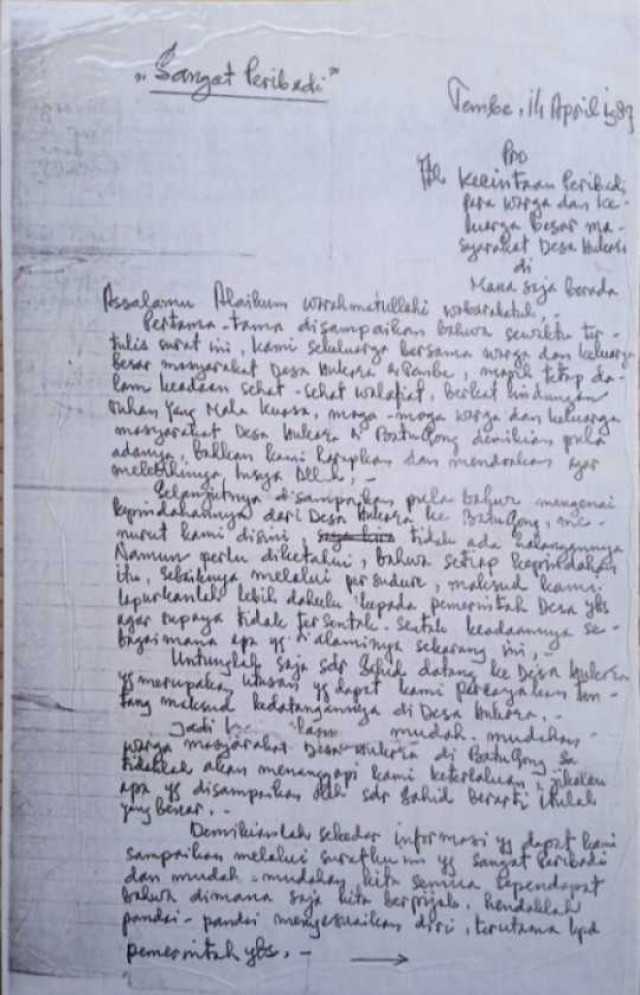 "Sangat Peribadi"
Tembe, 14 April 1987
Pro
Yth Kecintaan Peribadi
para warga dan ke-
luarga besar ma-
syarakat Desa Mukera
di
Mana saja berada
Assalamu Alaikum warahmatullahi wabarakatuh,.-
Pertama-tama disampaikan bahwa sewaktu ter-
tulis surat ini, kami sekeluarga bersama warga dan keluarga
besar masyarakat Desa Mukera di Tembe, masih tetap da-
lam keadaan sehat-sehat walafiat, berkat lindungan
Tuhan yang Maha Kuasa, moga-moga warga dan keluarga
masyarakat Desa Mukera di BatuGong demikian pula
adanya, bahkan kami harapkan dan mendoakan agar
melebihinya Insya Allah,.-
Selanjutnya disampaikan pula bahwa mengenai
kepindahannya dari Desa Mukera ke BatuGong, me-
nurut kami disini, tidak ada halangannya
Namun perlu diketahui, bahwa setiap kepindahan
itu, sebaiknya melalui persudure, maksud kami
lapurkanlah lebih dahulu kepada pemerintah Desa ybs
agar supaya tidak tersentak-sentak keadaannya se-
bagaimana apa yg dialaminya sekarang ini,.-
Untunglah saja sdr Sahid datang ke Desa Mukera
yg merupakan utusan yg dapat kami percayakan ten-
tang maksud kedatangannya di Desa Mukera,.-
Jadi mudah-mudahan
warga masyarakat Desa Mukera di BatuGong sa
tidaklah akan menanggapi kami keterlaluan, jikalau
apa yg disampaikan oleh sdr Sahid berarti itulah
yang benar,.-
Demikianlah sekedar informasi yg dapat kami
sampaikan melalui suratku ini yg sangat Peribadi
dan mudah-mudahan kita semua sependapat
bahwa dimana saja kita berpijak, hendaklah
pandai-pandai menyesuaikan diri, terutama kpd
pemerintah ybs,.- →